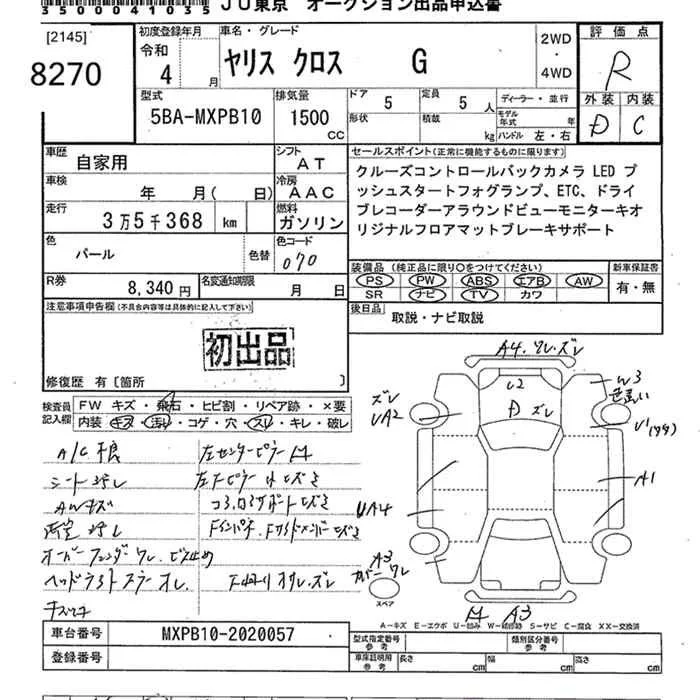 3500041035 JU東京 オークション出品申込書
[2145]
8270
初度登録年月
令和
4 月
車名・グレード
ヤリス クロス G
2WD
・
4WD
評価点
R
外装 内装
D C
型式
5BA-MXPB10
排気量
1500
CC
ドア 5
形状
定員 5 人
積載 kg
ディーラー・並行
モデル年式 年
ハンドル 左・右
車歴
自家用
シフト
AT
車検
年 月( 日)
冷房
AAC
走行
3万5千368 km
燃料
ガソリン
色
パール
色替
色コード
070
R券
8,340円
名変通知期限
月 日
セールスポイント(正常に機能するものに限ります)
クルーズコントロールバックカメラ LED プ
ッシュスタートフォグランプ、ETC、ドライ
ブレコーダーアラウンドビューモニターキオ
リジナルフロアマットブレーキサポート
装備品 (純正品に限り○をつけてください)
PS PW ABS エアB AW
SR ナビ TV カワ
新車保証書
有・無
後日品
取説・ナビ取説
注意事項申告欄(不具合内容等は具体的に記入して下さい)
初出品
修復歴 有〔箇所 〕
検査員
記入欄
FW キズ・飛石・ヒビ割・リペア跡・×要
内装 キズ・汚レ・コゲ・穴・スレ・キレ・破レ
A/C不良
シート汚レ
AWキズ
内空汚レ
オーバーフェンダーワレ、ビス止め
ヘッドライトスラーオレ、
左センターピラー
A4、ワレ・ズレ
ズレ
UA2
U2
D ズレ
W3
色違い
U1
A1
UA4
A3
カバーワレ
スペア
M A3
A-キズ E-エクボ U-凹み W-補修跡 S-サビ C-腐食 XX-交換済
車台番号
MXPB10-2020057
登録番号
型式指定番号
参考
類別区分番号
参考
車庫証明用
参考
長さ cm 幅 cm 高さ cm